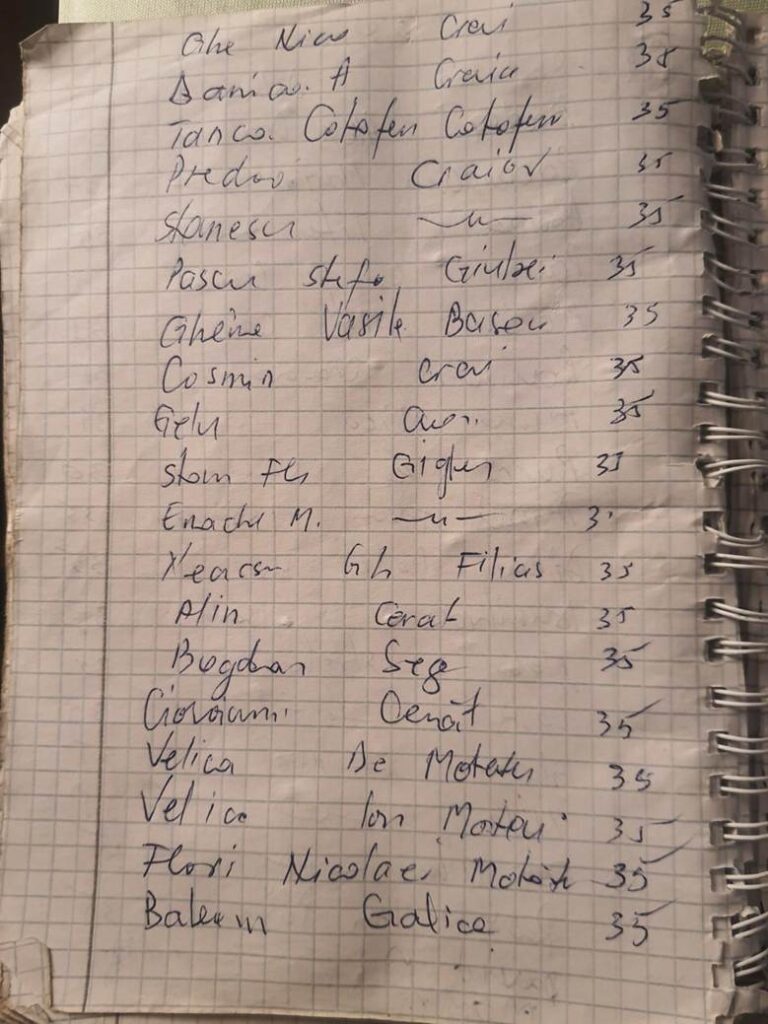 Ghe Nicu Crai 35
Danciu. A Craiu 35
Tanco. Cotofen Cotofen 35
Preduo Craiov 35
Stanescu —„— 35
Pascu Stefo Giubei 35
Ghéne Vasile Bascu 35
Cosmin Crai 35
Gelu 35
Stom Fl 35
Enache M. —„— 3
Neacsu Gh Filias 35
Alin Cerat 35
Bogdan Sege 35
Giovanni Cerăt 35
Velica De Motatu 35
Velica Ion Motoci 35
Flori Nicolae Motăt 35
Galice 35